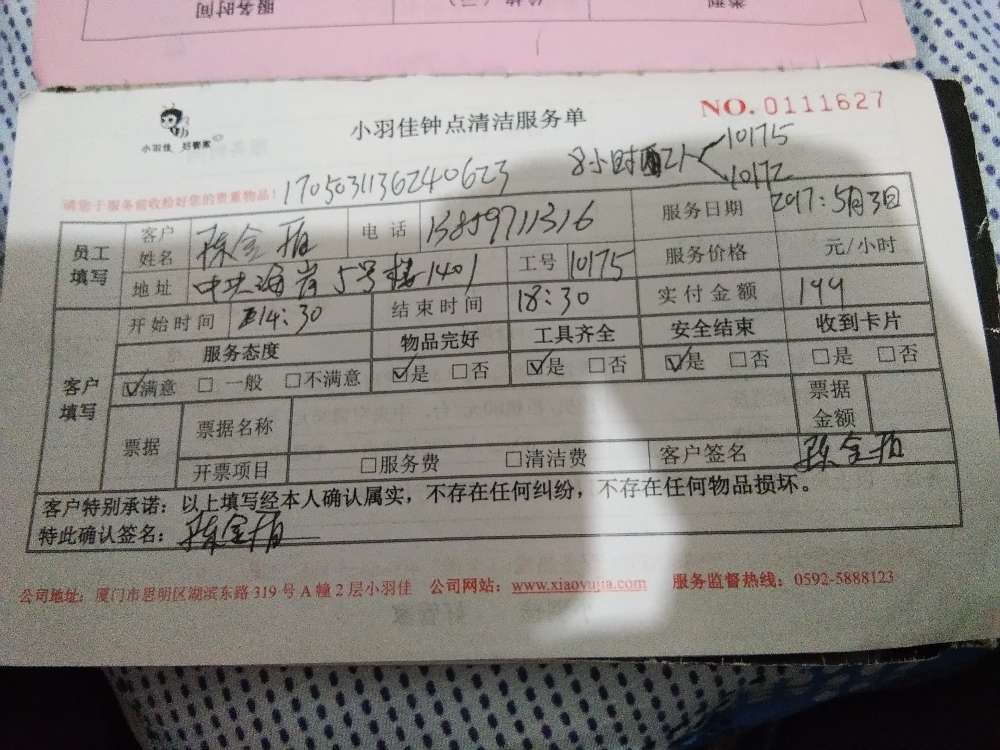 服务时间
类别
NO. 0111627
小羽佳钟点清洁服务单
小羽佳 好管家
8小时 2人 10175
10172
请您于服务前收检好您的贵重物品! 1705031136240623
员工填写 客户姓名 陈金 电话 服务日期 2017:5月3日
地址 中央海岸5号楼1401 工号 10175 服务价格 元/小时
客户填写 开始时间 14:30 结束时间 18:30 实付金额 199
服务态度 物品完好 工具齐全 安全结束 收到卡片
☑满意 □一般 □不满意 ☑是 □否 ☑是 □否 ☑是 □否 □是 □否
票据 票据名称 票据金额
开票项目 □服务费 □清洁费 客户签名 陈金
客户特别承诺:以上填写经本人确认属实,不存在任何纠纷,不存在任何物品损坏。
特此确认签名: 陈金
公司地址:厦门市思明区湖滨东路319号A幢2层小羽佳 公司网站:www.xiaoyujia.com 服务监督热线:0592-5888123